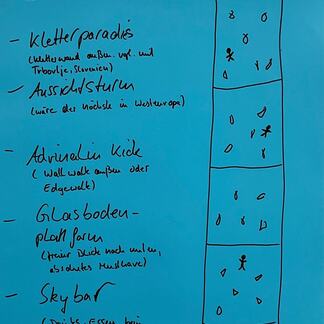 - Kletterparadies
(Kletterwand außen, vgl. mit
Trbovlje, Slovenien)
- Aussichtsturm
(wäre der höchste in Westeuropa)
- Adrenalin Kick
(Wall walk außen oder
Edgewalk)
- Glasboden-
plattform
(freier Blick nach unten,
absolutes Musthave)
- Skybar
(Drinks, Essen beim